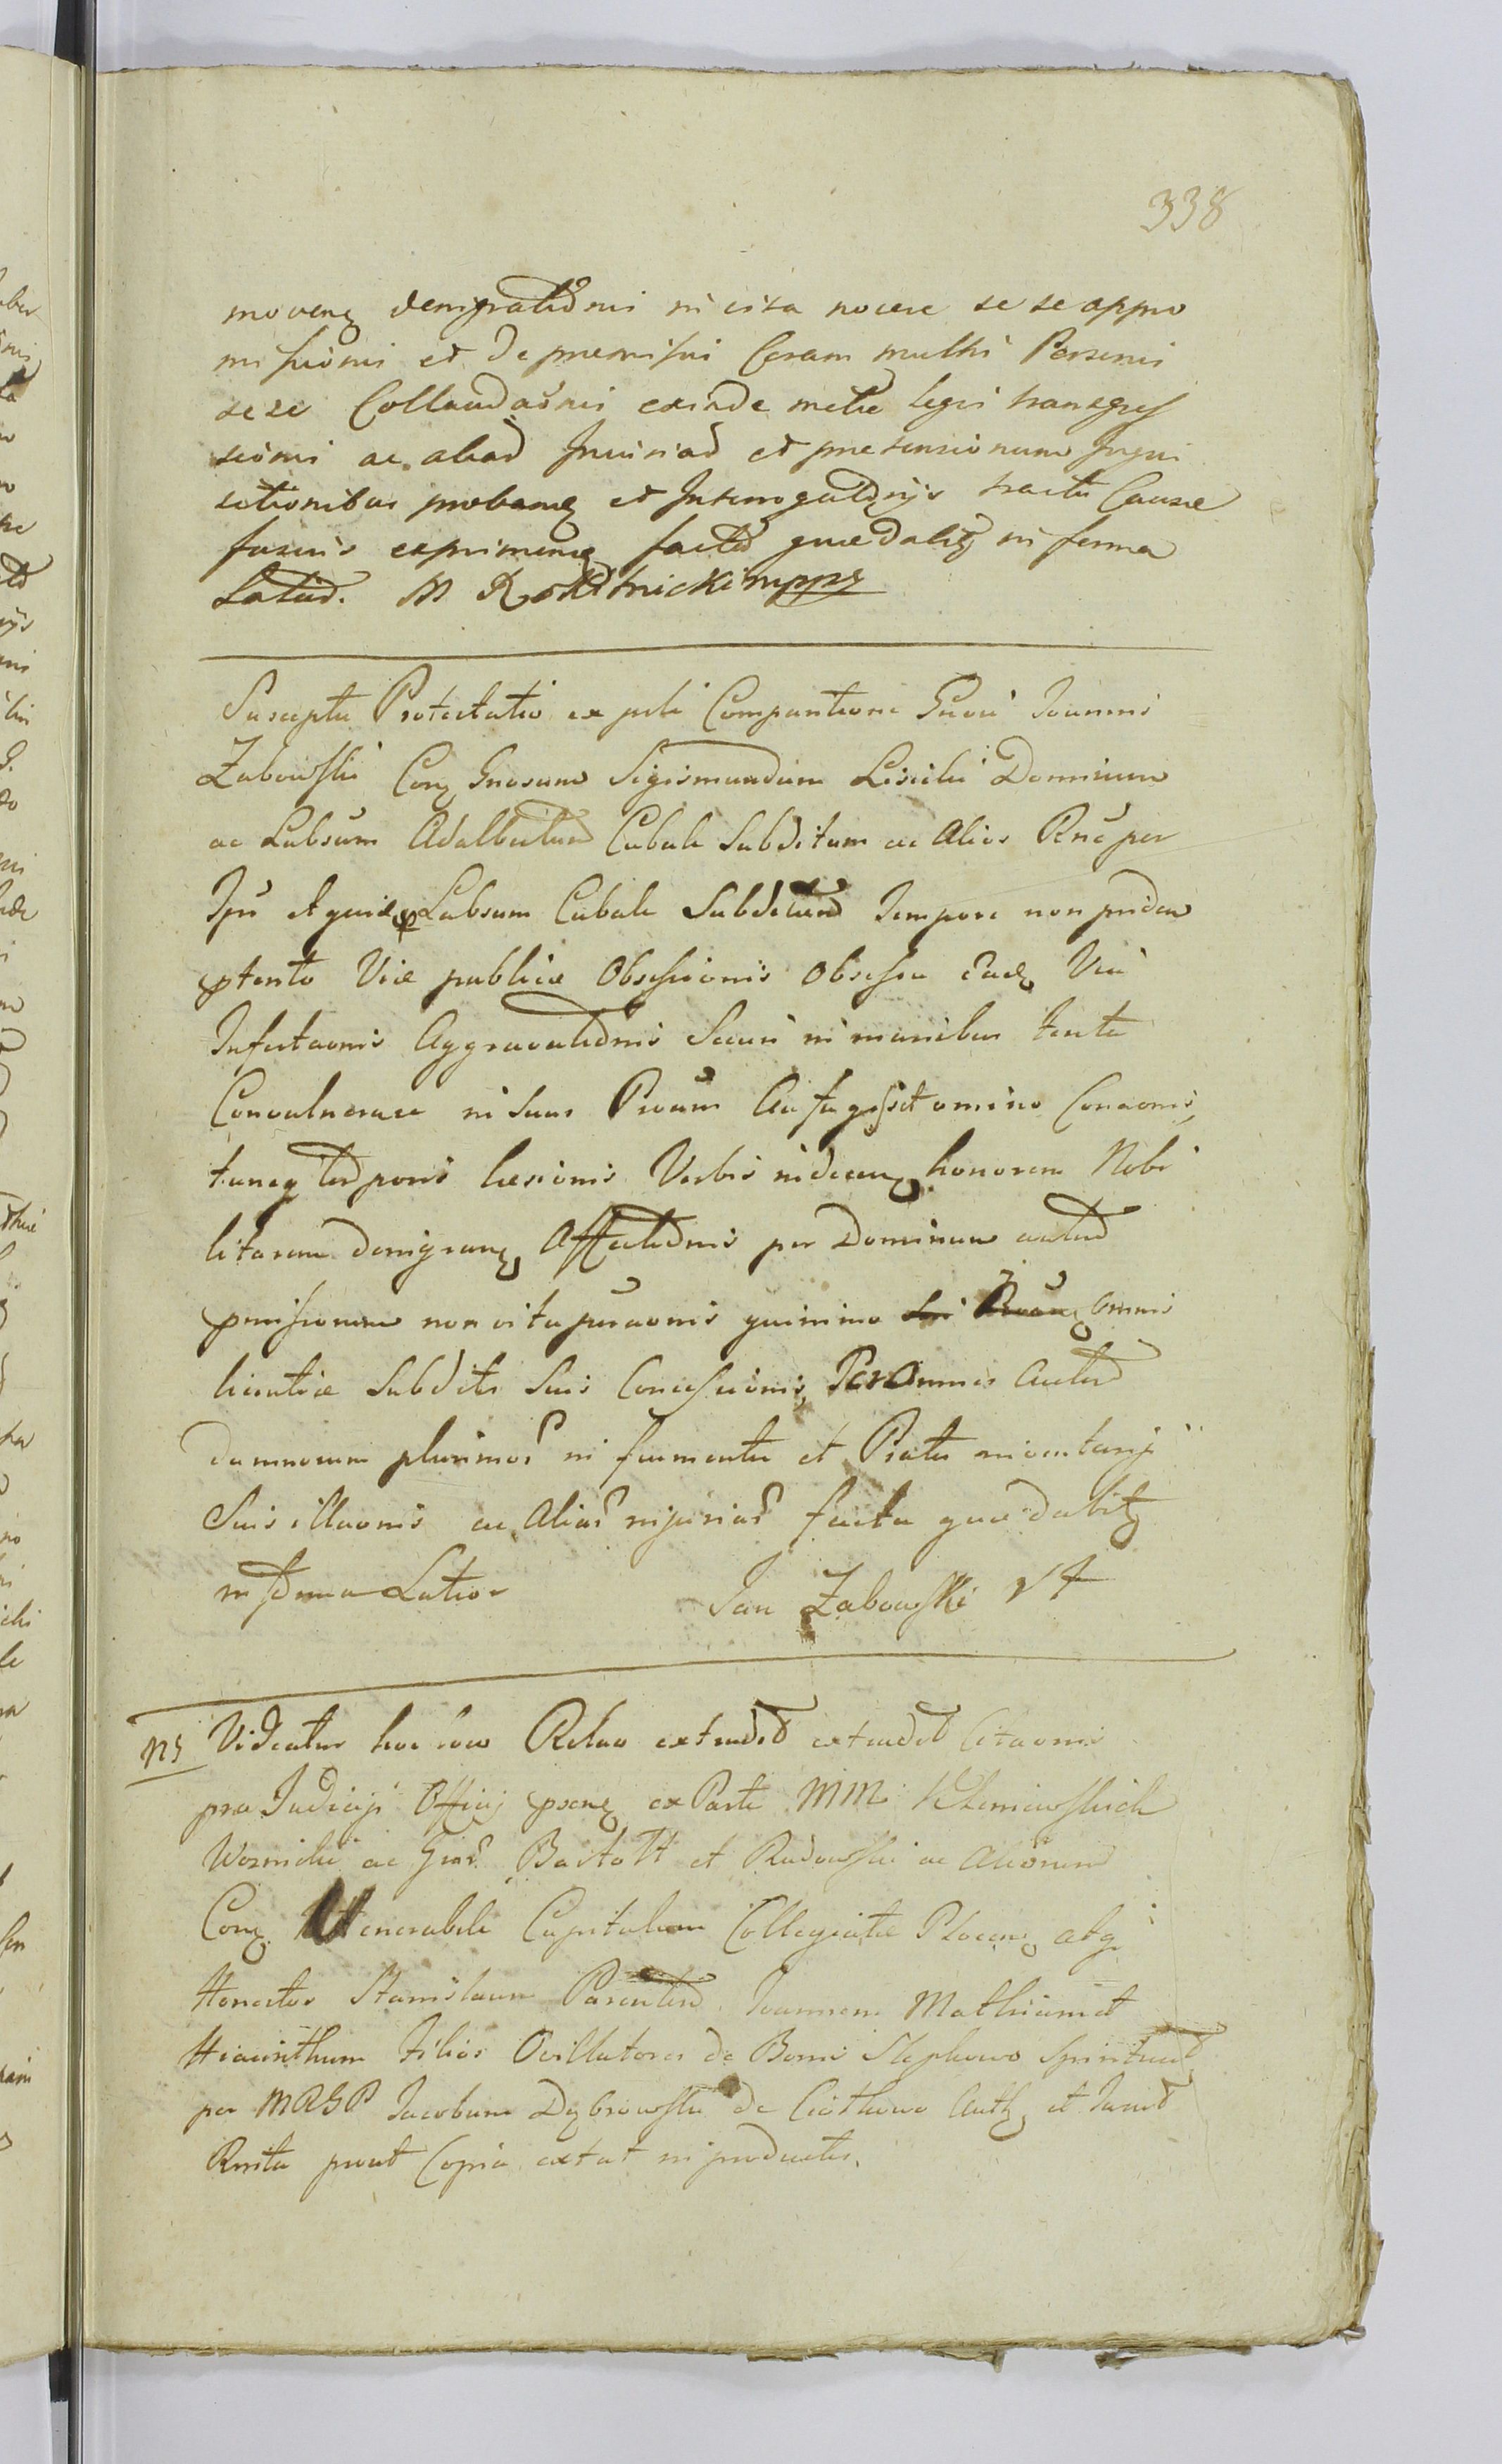 338
movenę denigrationis in vita nocere se se appro
missionis et de premissis Coram multis Personis
sese Collaudaōnis exinde metae legis transgres
sionis ac aliad Injuriad et pretensionum Inqui
sitionibus probanę et Interrogatorijs tractu Causae
fusius exprimenę facta quae dabitę in forma
Latiad. M Rokitnicki mppę
Suscepta Protestatio ex psti Comparitione Gnosi Joannis
Zabowski Conę Gnosum Sigismundum Lisicki Dominum
ac Labsum Adalbertum Cubala Subditum ac Alios Rnē per
Ipū et quia Labsum Cubala Subditum tempore non pridem
ptento Viae publicae Obsessionis obsessa Eadę Via
Infestaonis Aggravationis Securi in manibus tenta
Convulnerare in suas Pvum Aufugisset omino Conaonis,
tuncę corporis laesionis Verbis indecenę honorem Nobi
litarem denigranę Affectationis per Dominum autem
pmissorum non vituperaonis quinimo omnis
licentiae Subditis suis Concessionis, Per omnis Autem
damnorum plurimor in frumentis et Pratis inventarij
Suis illaonis ac Alias injurias facta quae dabitę
in forma Latior
Jan Zabowski r +
NB Videatur hoc loco Relao extendet extendet Citaonis
pro Judicijs Officij psenę ex Parte MM Kleniewskich
Woznicki ac Gnos. Bartold et Rudowski ac Aliorum
Conę Venerabile Capitulum Collegiatae Plocenę atq
Honestos Stanislaum Parentem Joannem Mathiam et
Hiacinthum Filios Ovillatores de Bonis Slephowo Spiritual
per MRGP Jacobum Dąbrowski de Ciothowo Auth et Jurid
Rnita prout Copia extat in productis.